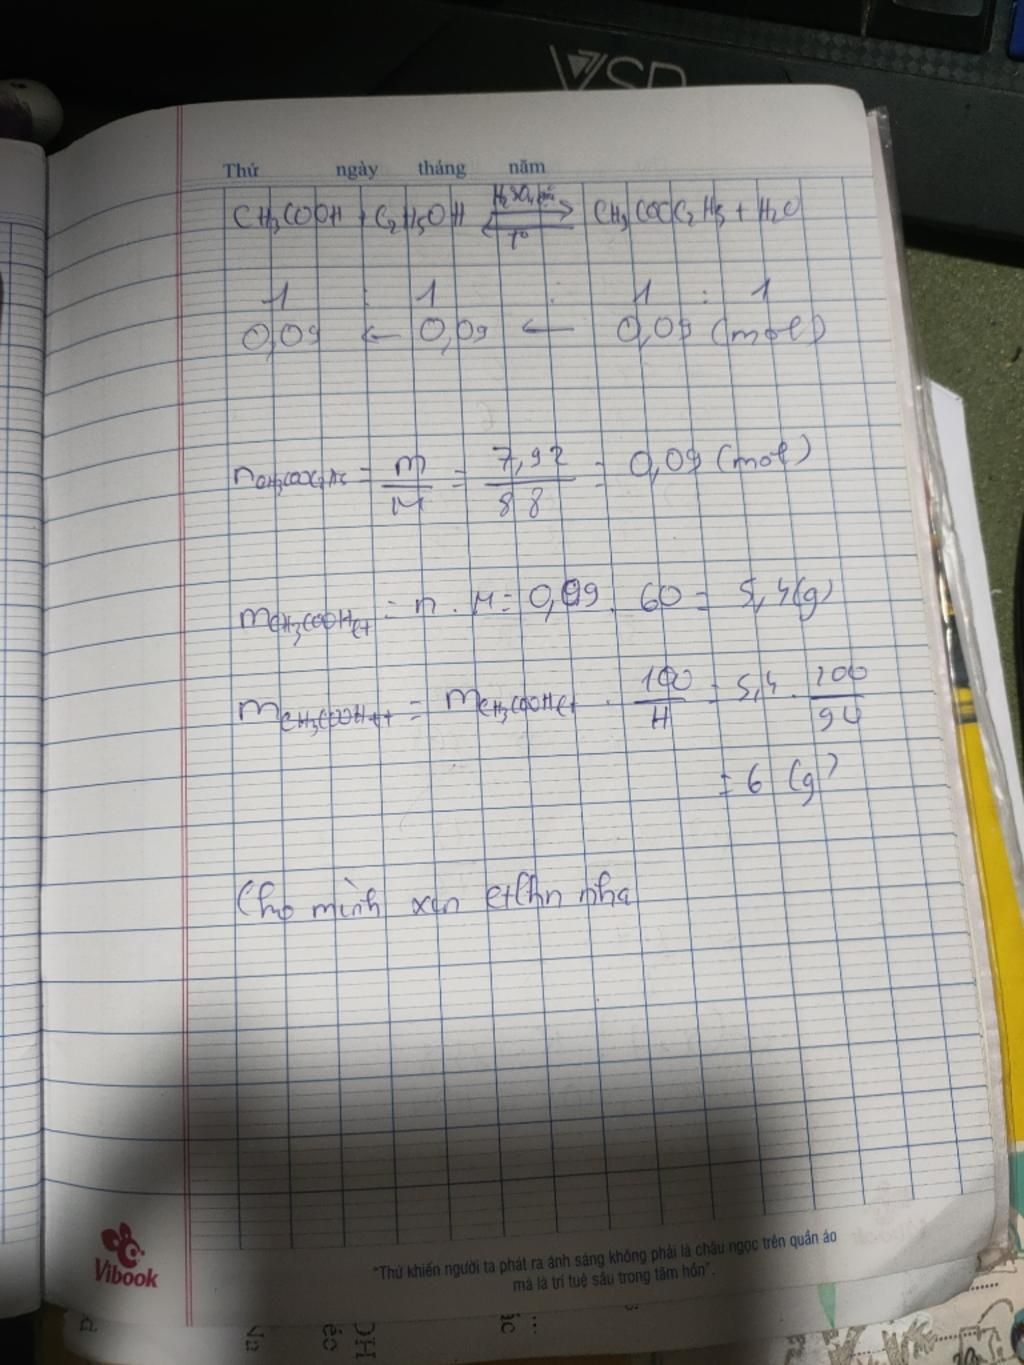 VSP
Thứ ngày tháng năm
CH3COOH + C2H5OH ⇌ H2SO4 đặc t° CH3COOC2H5 + H2O
1 : 1 : 1 : 1
0,09 ← 0,09 ← 0,09 (mol)
nCH3COOC2H5 = m/M = 7,92/88 = 0,09 (mol)
mCH3COOH ct = n . M = 0,09 . 60 = 5,4 (g)
mCH3COOH tt = mCH3COOH ct . 100/H = 5,4 . 100/90
= 6 (g)
Cho mình xin ctlhn nha
Vibook
"Thứ khiến người ta phát ra ánh sáng không phải là châu ngọc trên quần áo
mà là trí tuệ sâu trong tâm hồn".